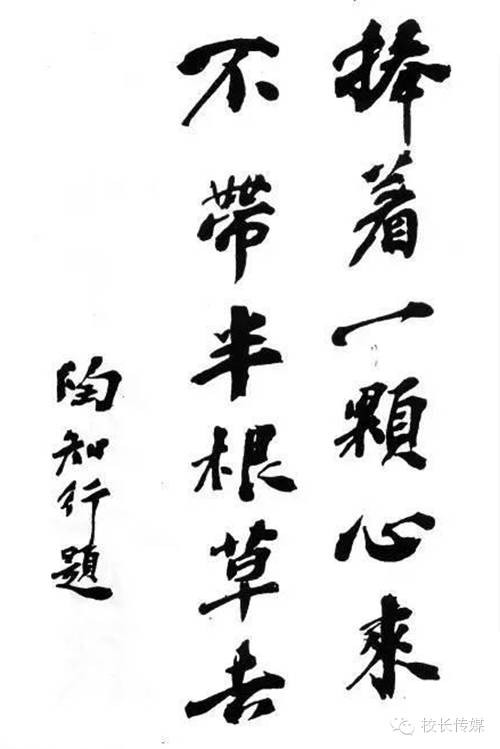 捧着一顆心來
不帶半根草去
陶知行題
校长传媒